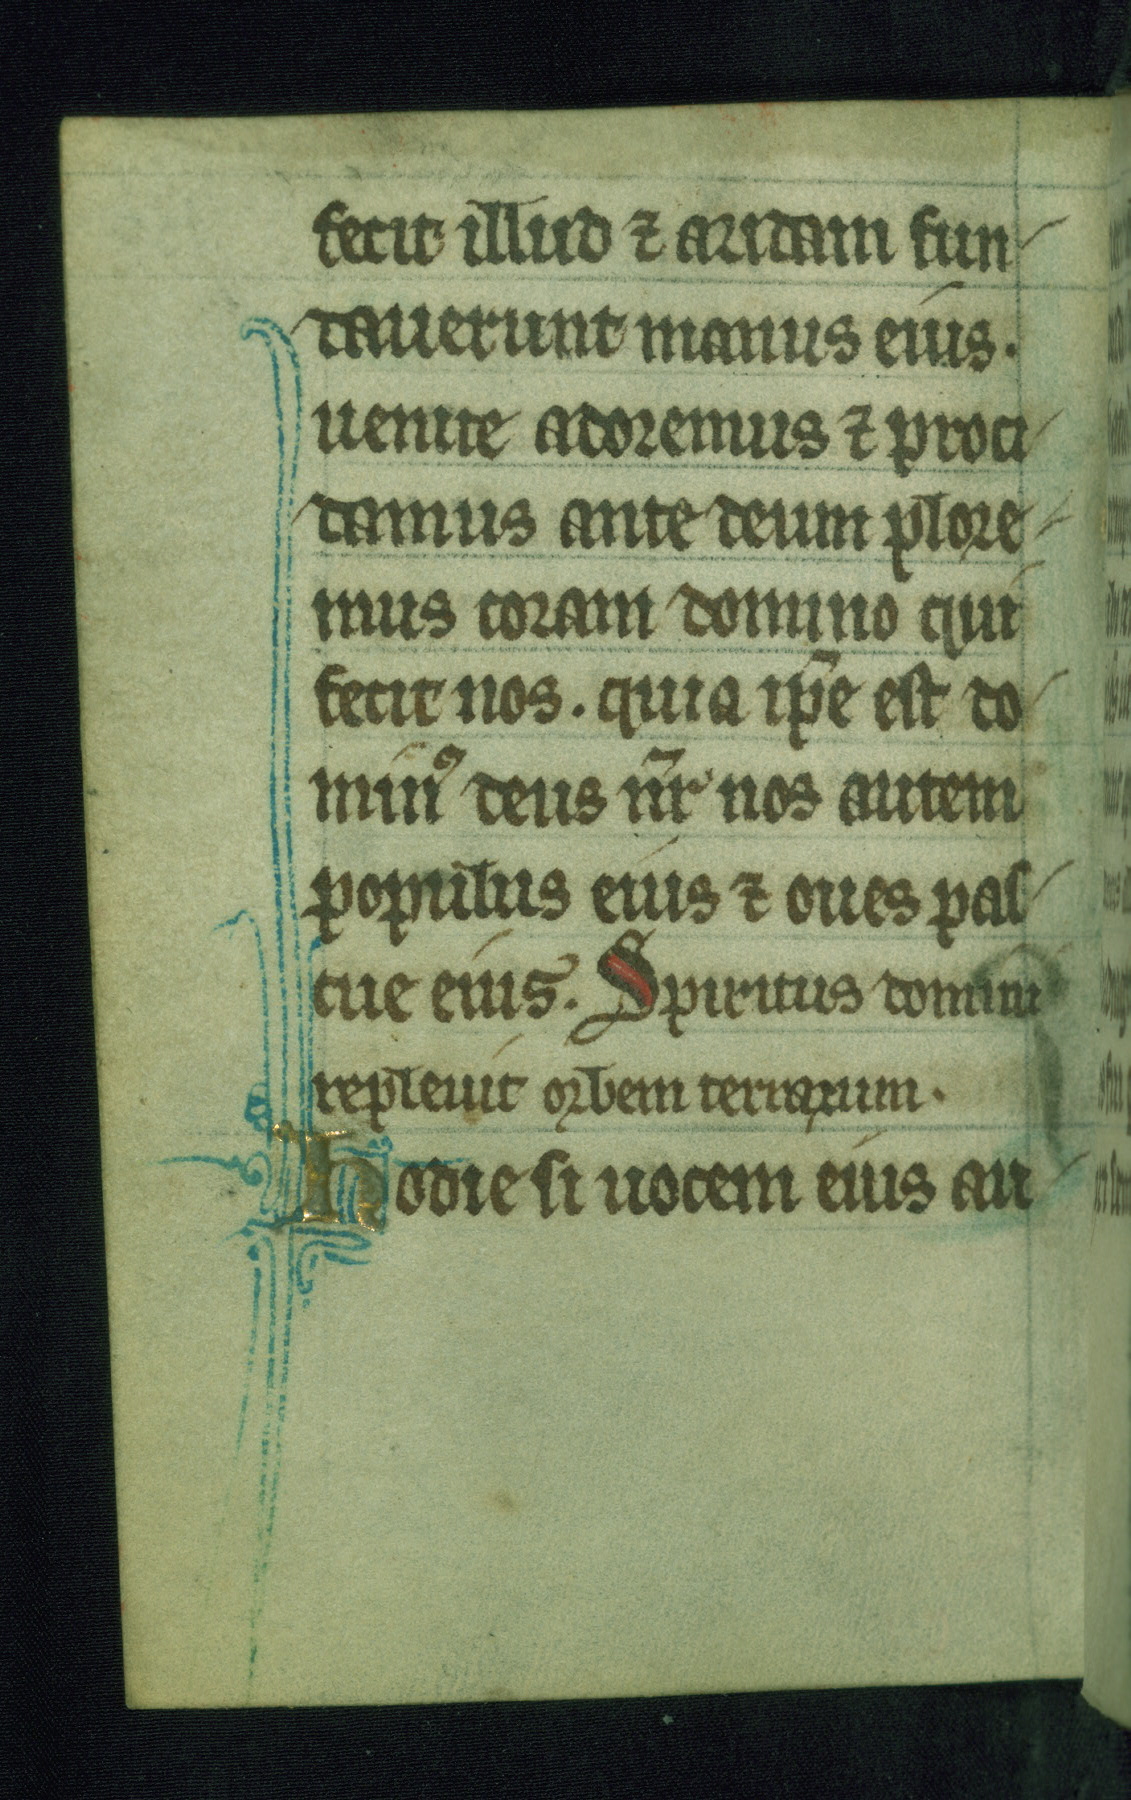 fecit illud ⁊ aridam fun
dauerunt manus eius.
uenite adoremus ⁊ proci
damus ante deum plore
mus coram domino qui
fecit nos. quia ip̄e est do
minꝰ deus nr̄ nos autem
populus eius ⁊ oues pas
cue eius. Spiritus domini
repleuit orbem terrarum.
Hodie si uocem eius au